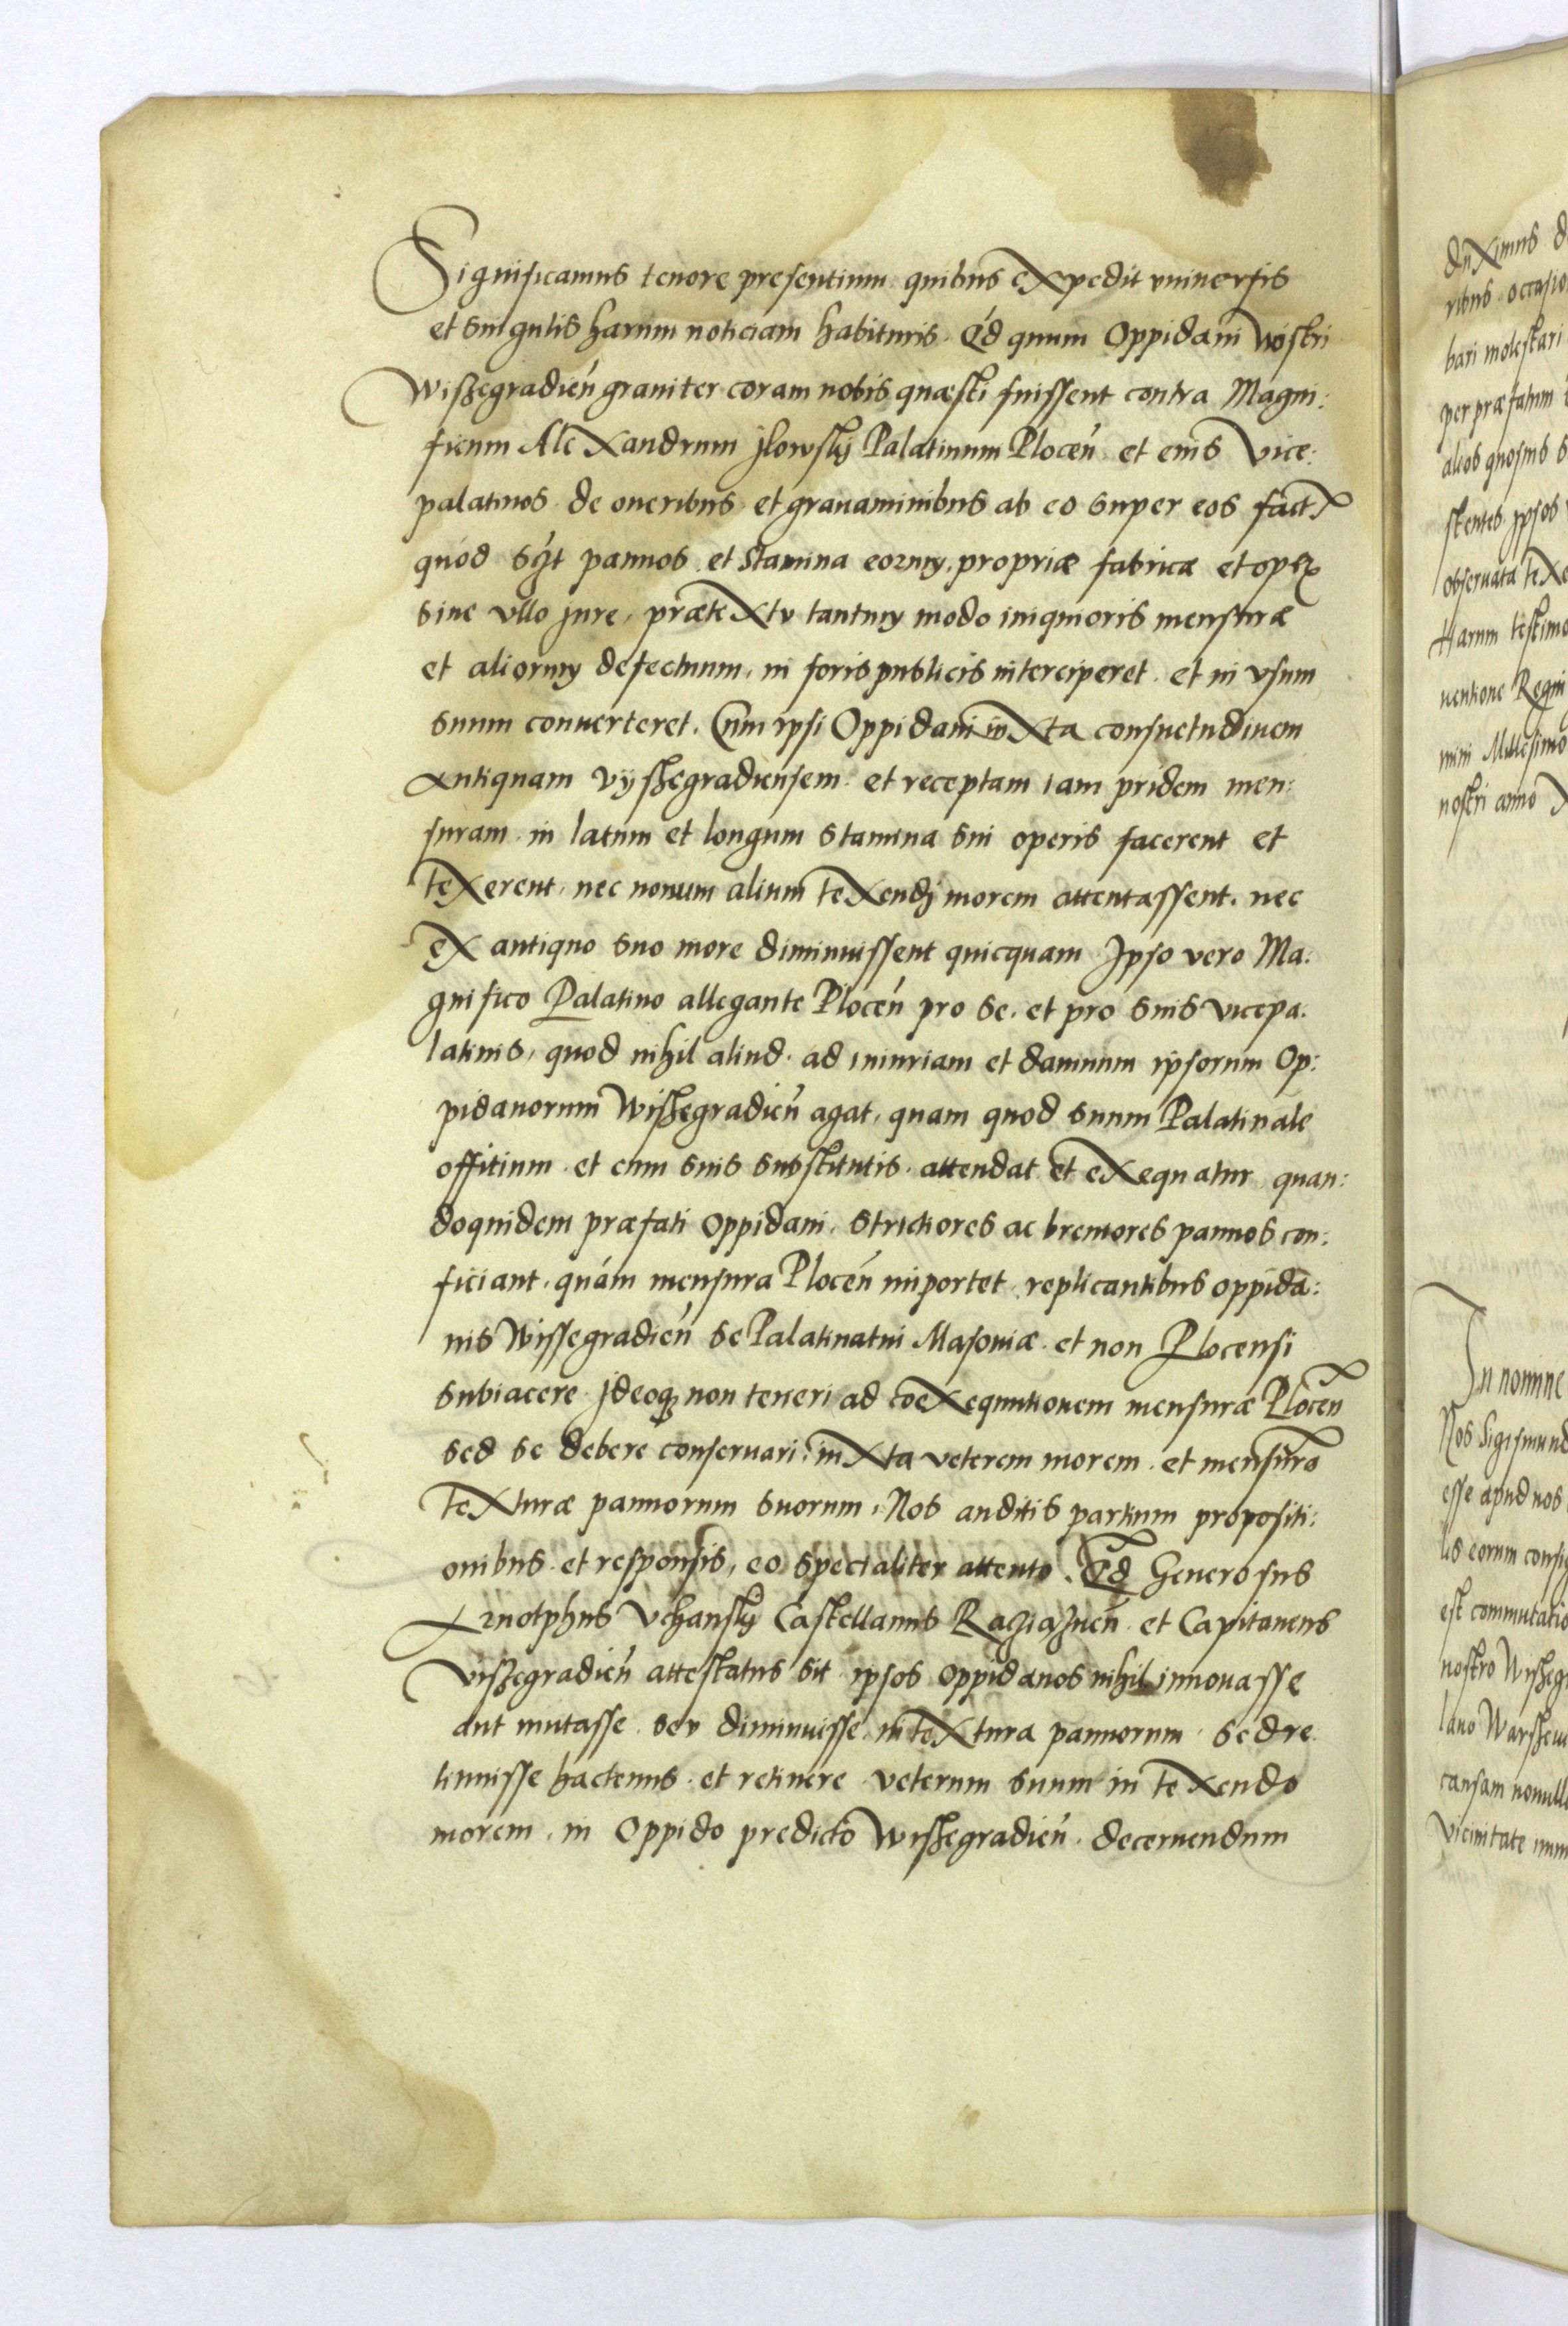 Significamus tenore presentium quibus expedit vniuersis
et singulis harum noticiam habituris. Qd quum Oppidani Nostri
Wißegradien̄ grauiter coram nobis quæsti fuissent contra Magni:
ficum Alexandrum Jlowskij Palatinum Plocen̄ et eius Vice:
palatinos de oneribus et grauaminibus ab eo super eos fact
quód pannos et Stamina eorum, propriæ fabricæ et
sine vllo jure, prætextu tantum modo iniquioris mensuræ
et aliorum defectuum, in foris publicis interciperet et in vsum
suum conuerteret. Cum ipsi Oppidani iuxta consuetudinem
Antiquam Vyschegradiensem et receptam iam pridem men:
suram in latum et longum stamina sui operis facerent et
texerent, nec nouum alium texendj morem attentassent, nec
ex antiquo suo more diminuissent quicquam Jpso vero Ma:
gnifico Palatino allegante Plocen̄ pro se, et pro suis vicepa:
latinis, quod nihil aliud ad iniuriam et damnum ipsorum Op:
pidanorum Wißegradien̄ agat, quam quod suum Palatinale
offitium et cum suis substitutis attendat et exequatur quan:
doquidem præfati Oppidani strictiores ac breuiores pannos con:
ficiant, quám mensura Plocen̄ importet replicantibus oppida:
nis Wissegradien̄ se Palatinatui Masouiæ et non Plocensi
subiacere jdeoq; non teneri ad coexequutionem mensuræ Plocen̄
sed se debere conseruari iuxta veterem morem et mensurā
texturæ pannorum suorum, Nos auditis partium propositi:
onibus et responsis, eo specialiter attento. Qd Generosus
Arnolphus Vchanskij Castellanus Raziazuen̄ et Capitaneus
Vißegradien̄ attestatus sit ipsos Oppidanos nihil innouasse
aut mutasse seu diminuisse in textura pannorum sed re
tinuisse hactenus et retinere veterum suum in texendo
morem, in Oppido predicto Wißegradien̄ decernendum
duximus
ribus occasio
bari molestari
per præfatum
alios quosuis
stentes ipsos
obseruata texe
Harum testimo
uentione Regni
mini Millesimo
nostri anno
In nomine
Nos Sigismund
esse apud nos
lis eorum consi
est commutatio
nostro Wißegr
lano Warscheu
causam nonulla
Vicinitate